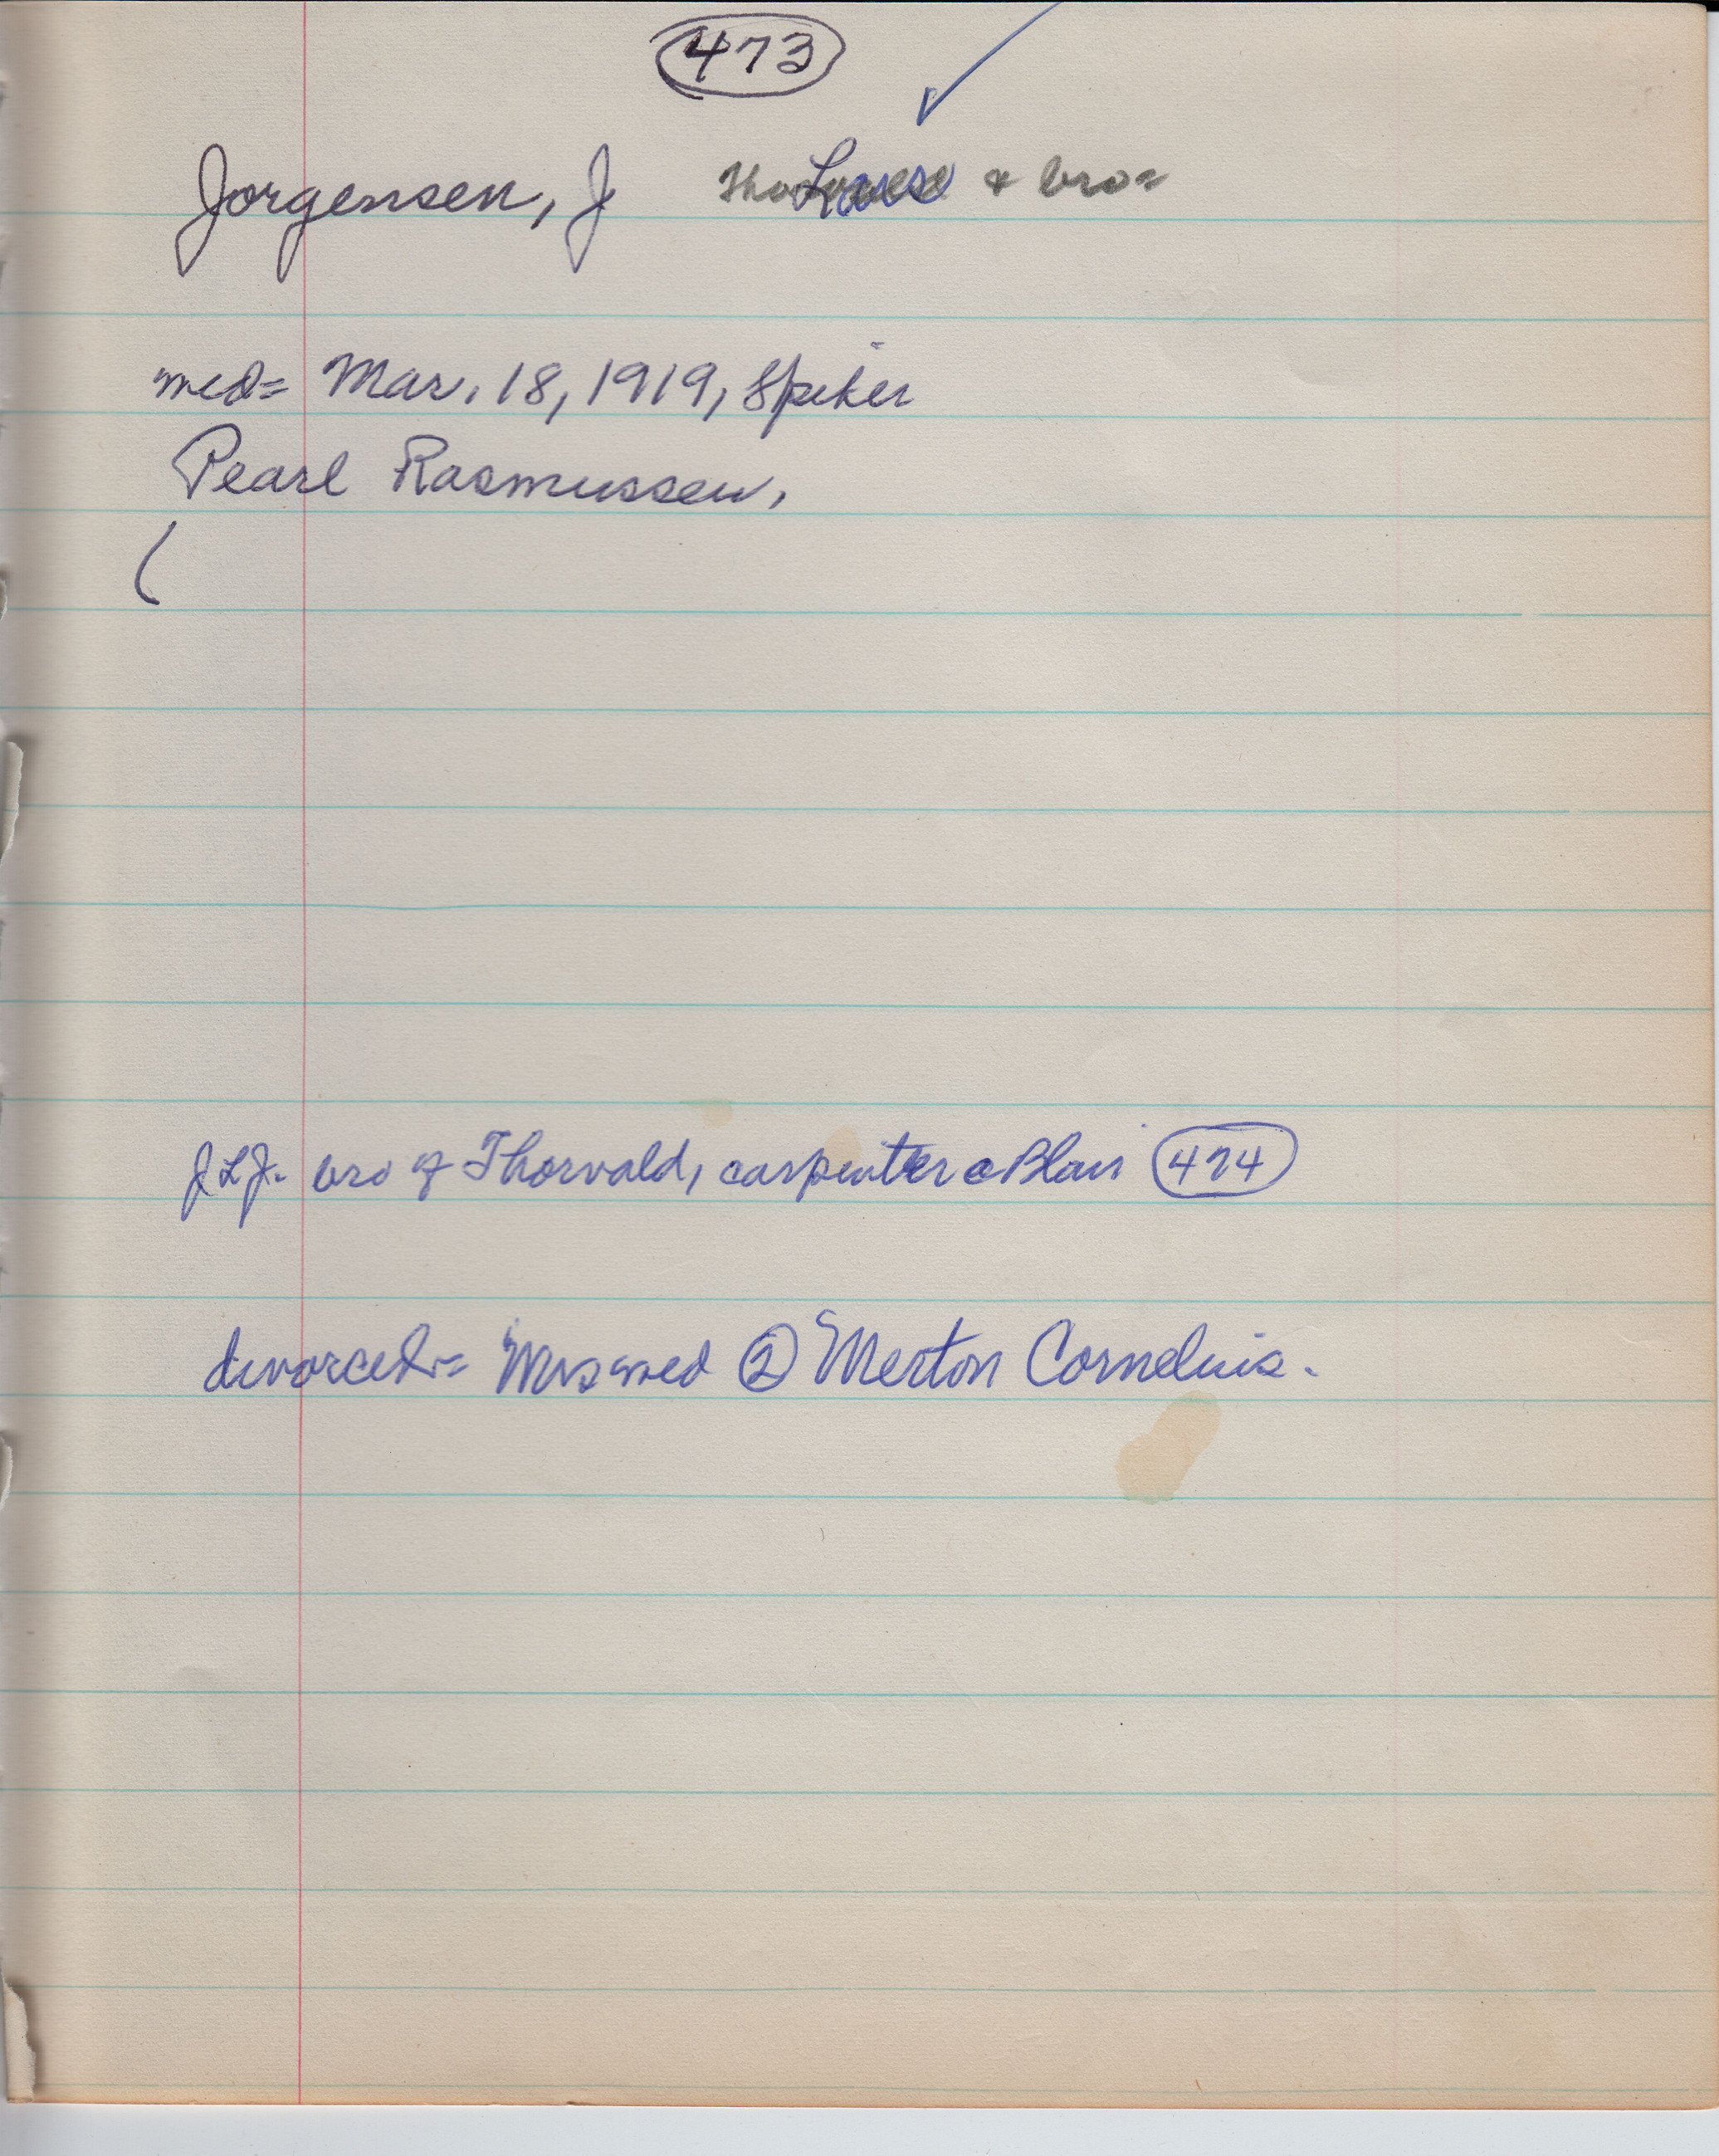 473
Jorgensen, J Lars & bro=
med= Mar. 18, 1919, Spiker
Pearl Rasmussen,
(
J L J. bro of Thorvald, carpenter @ Blair 474
divorced:= Mrs med ② Merton Cornelius.